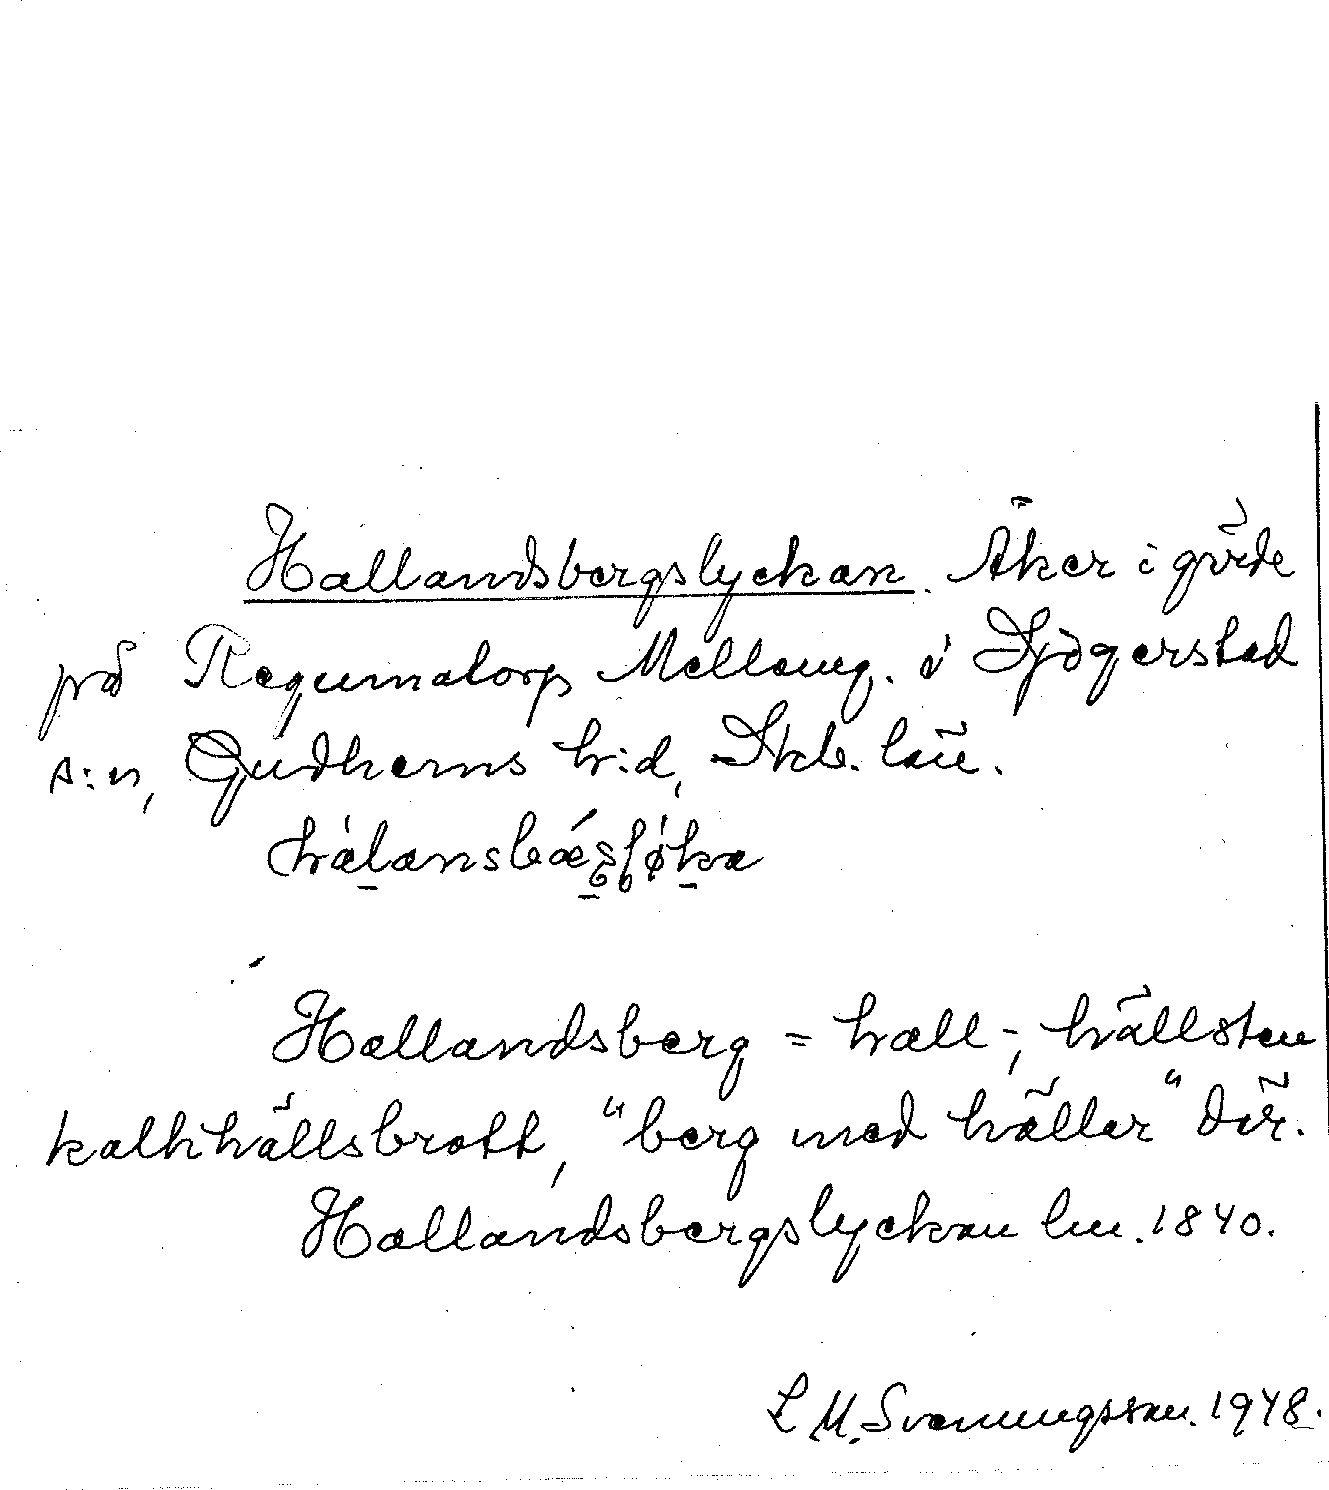 Hallandsbergslyckan. Åker i gärde
på Regumatorp Mellomg. i Sjögerstad
s:n, Gudhems h:d, Skb. län.
Hallandsberg = hall-, hällsten
kalkhällsbrott, "berg med hällar" där.
Hallandsbergslyckan lm. 1840.
L M. Svenungsson. 1948.